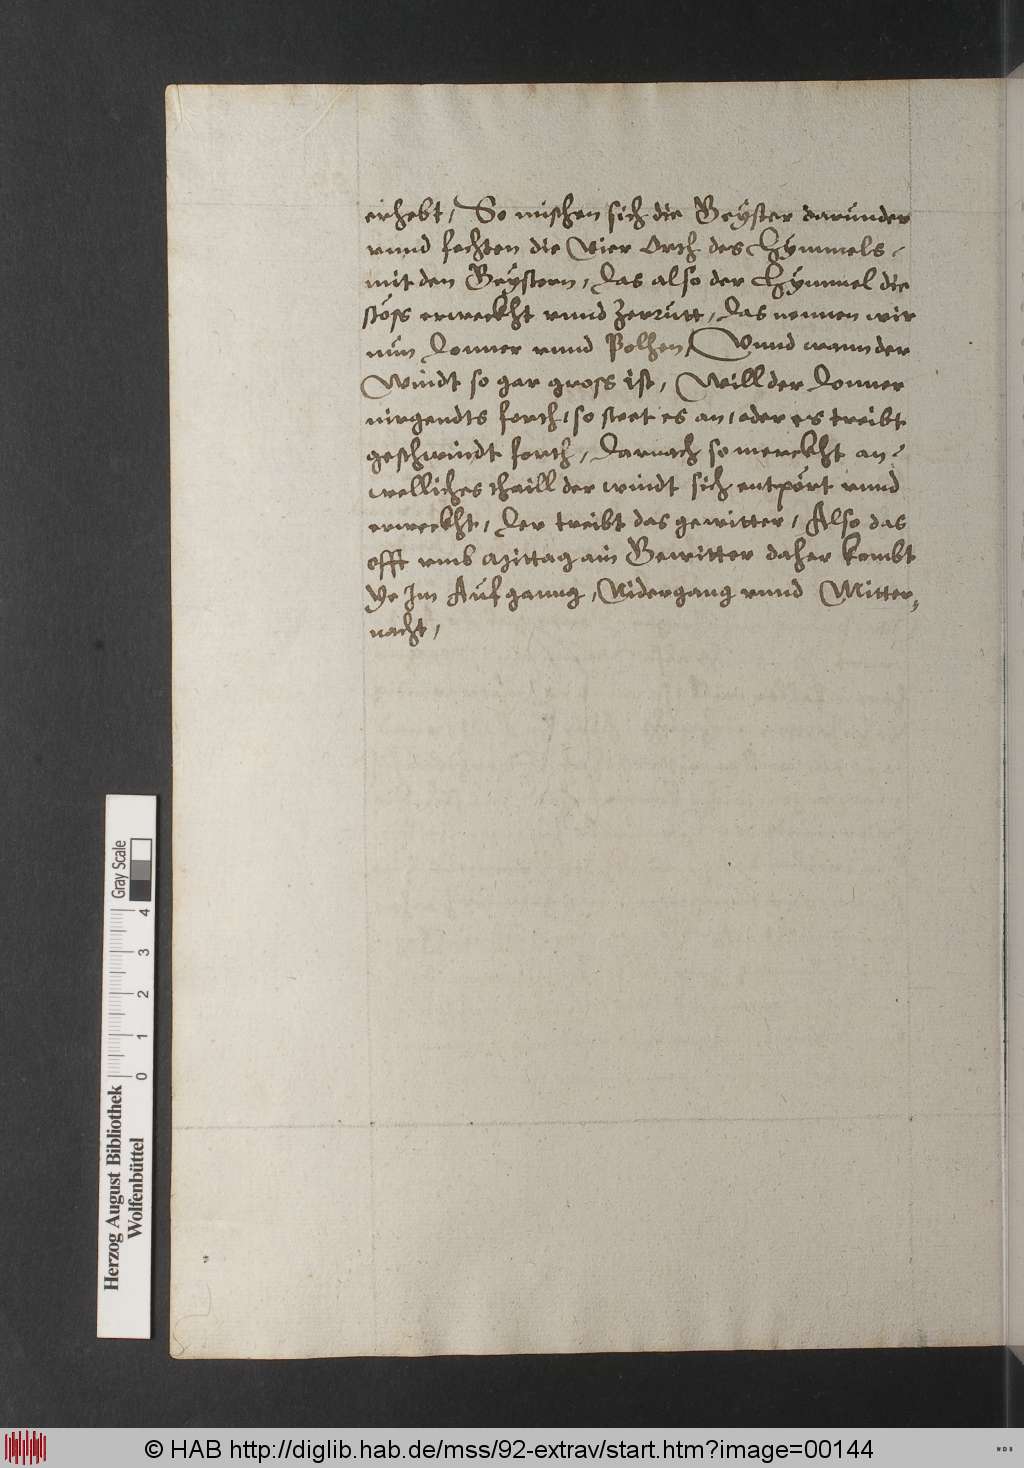 erhebt, So mischen sich die Geyster darunder
vnnd fechten die Vier Orth des Hymmels,
mit den Geystern, das also der Hymmel die
stöss erweckht vnnd Zerrütt, das nennen wir
nun Donner vnnd Polhen, Vnnd wann der
Windt so gar gross ist, Will der Donner
nirgendts forth, so steet es an, oder es treibt
geschwindt forth, Darnach so merckht an,
welliches thaill der windt sich entpört vnnd
erweckht, Der treibt das gewitter, Also das
offt vmb Mittag ain Gewitter daher kombt
Ye Im Aufganng, Nidergang vnnd Mitter,
nacht,
0 1 2 3 4
Gray Scale
Herzog August Bibliothek
Wolfenbüttel
© HAB http://diglib.hab.de/mss/92-extrav/start.htm?image=00144